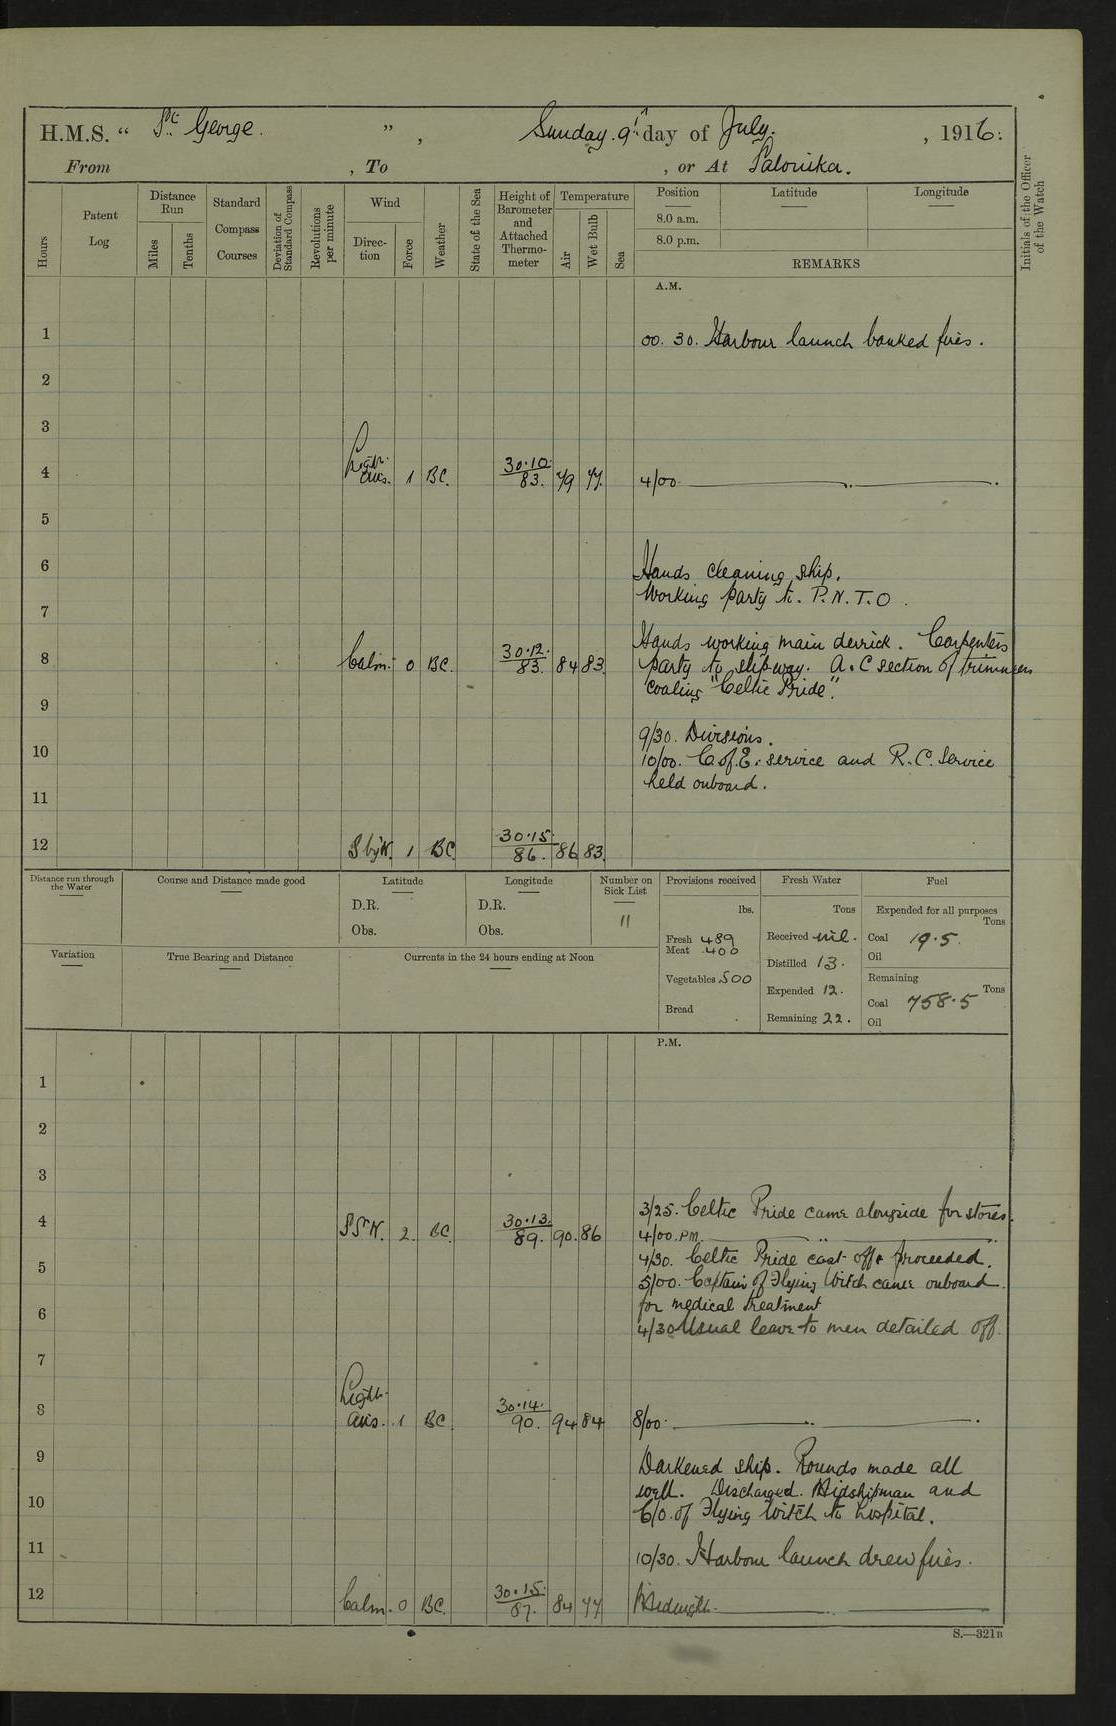 H.M.S. “ St. George. ” , Sunday. 9th day of July. , 1916.
From , To , or At Salonika.
Initials of the Officer of the Watch
Hours
Patent Log
Distance Run
Miles
Tenths
Standard Compass Courses
Deviation of Standard Compass
Revolutions per minute
Wind
Direc-tion
Force
Weather
State of the Sea
Height of Barometer and Attached Thermo-meter
Temperature
Air
Wet Bulb
Sea
Position Latitude Longitude
8.0 a.m.
8.0 p.m.
REMARKS
A.M.
1 00. 30. Harbour launch banked fires.
2
3
4 Light airs. 1 BC. 30.10. 83. 79 77. 4/00
5
6 Hands cleaning ship.
Working party to P.N.T.O.
7
Hands working main derrick. Carpenters
8 Calm. 0 BC. 30.12. 83. 84 83 party to slipway. A & C section of trimmers
coaling "Celtic Pride".
9
9/30. Divisions.
10 10/00. C. of E. service and R.C. Service
held onboard.
11
12 S by W. 1 BC 30.15. 86. 86 83.
Distance run through the Water
Course and Distance made good
Latitude
D.R.
Obs.
Longitude
D.R.
Obs.
Number on Sick List
11
Provisions received
lbs.
Fresh Meat 489 400
Vegetables 500
Bread
Fresh Water
Tons
Received nil.
Distilled 13.
Expended 12.
Remaining 22.
Fuel
Expended for all purposes
Tons
Coal 19.5.
Oil
Remaining
Tons
Coal 758.5
Oil
Variation
True Bearing and Distance
Currents in the 24 hours ending at Noon
P.M.
1
2
3
3/25. Celtic Pride came alongside for stores.
4 SSW. 2. BC. 30.13. 89. 90. 86 4/00. PM.
4/30. Celtic Pride cast off & proceeded.
5 5/00. Captain of Flying Witch came onboard
for medical treatment
6 4/30 Usual leave to men detailed off.
7
8 Light airs. 1 BC 30.14. 90. 94 84 8/00.
9 Darkened ship. Rounds made all
well. Discharged. Midshipman and
10 C/O. of Flying Witch to hospital.
11 10/30. Harbour launch drew fires.
12 Calm. 0 BC. 30.15. 87. 84 77 Midnight.
S.—321B